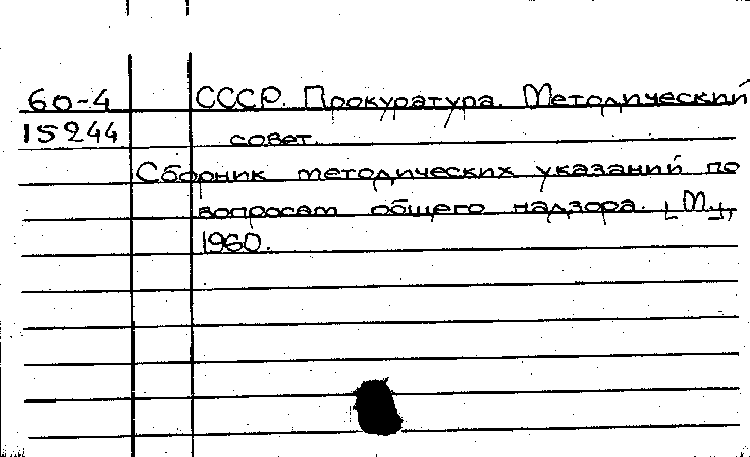 60-4 СССР. Прокуратура. Методический
15244 совет.
Сборник методических указаний по
вопросам общего надзора. [М.],
1960.